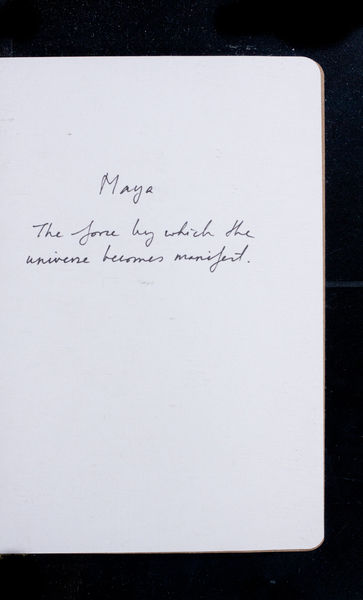 Maya
The force by which the
universe becomes manifest.